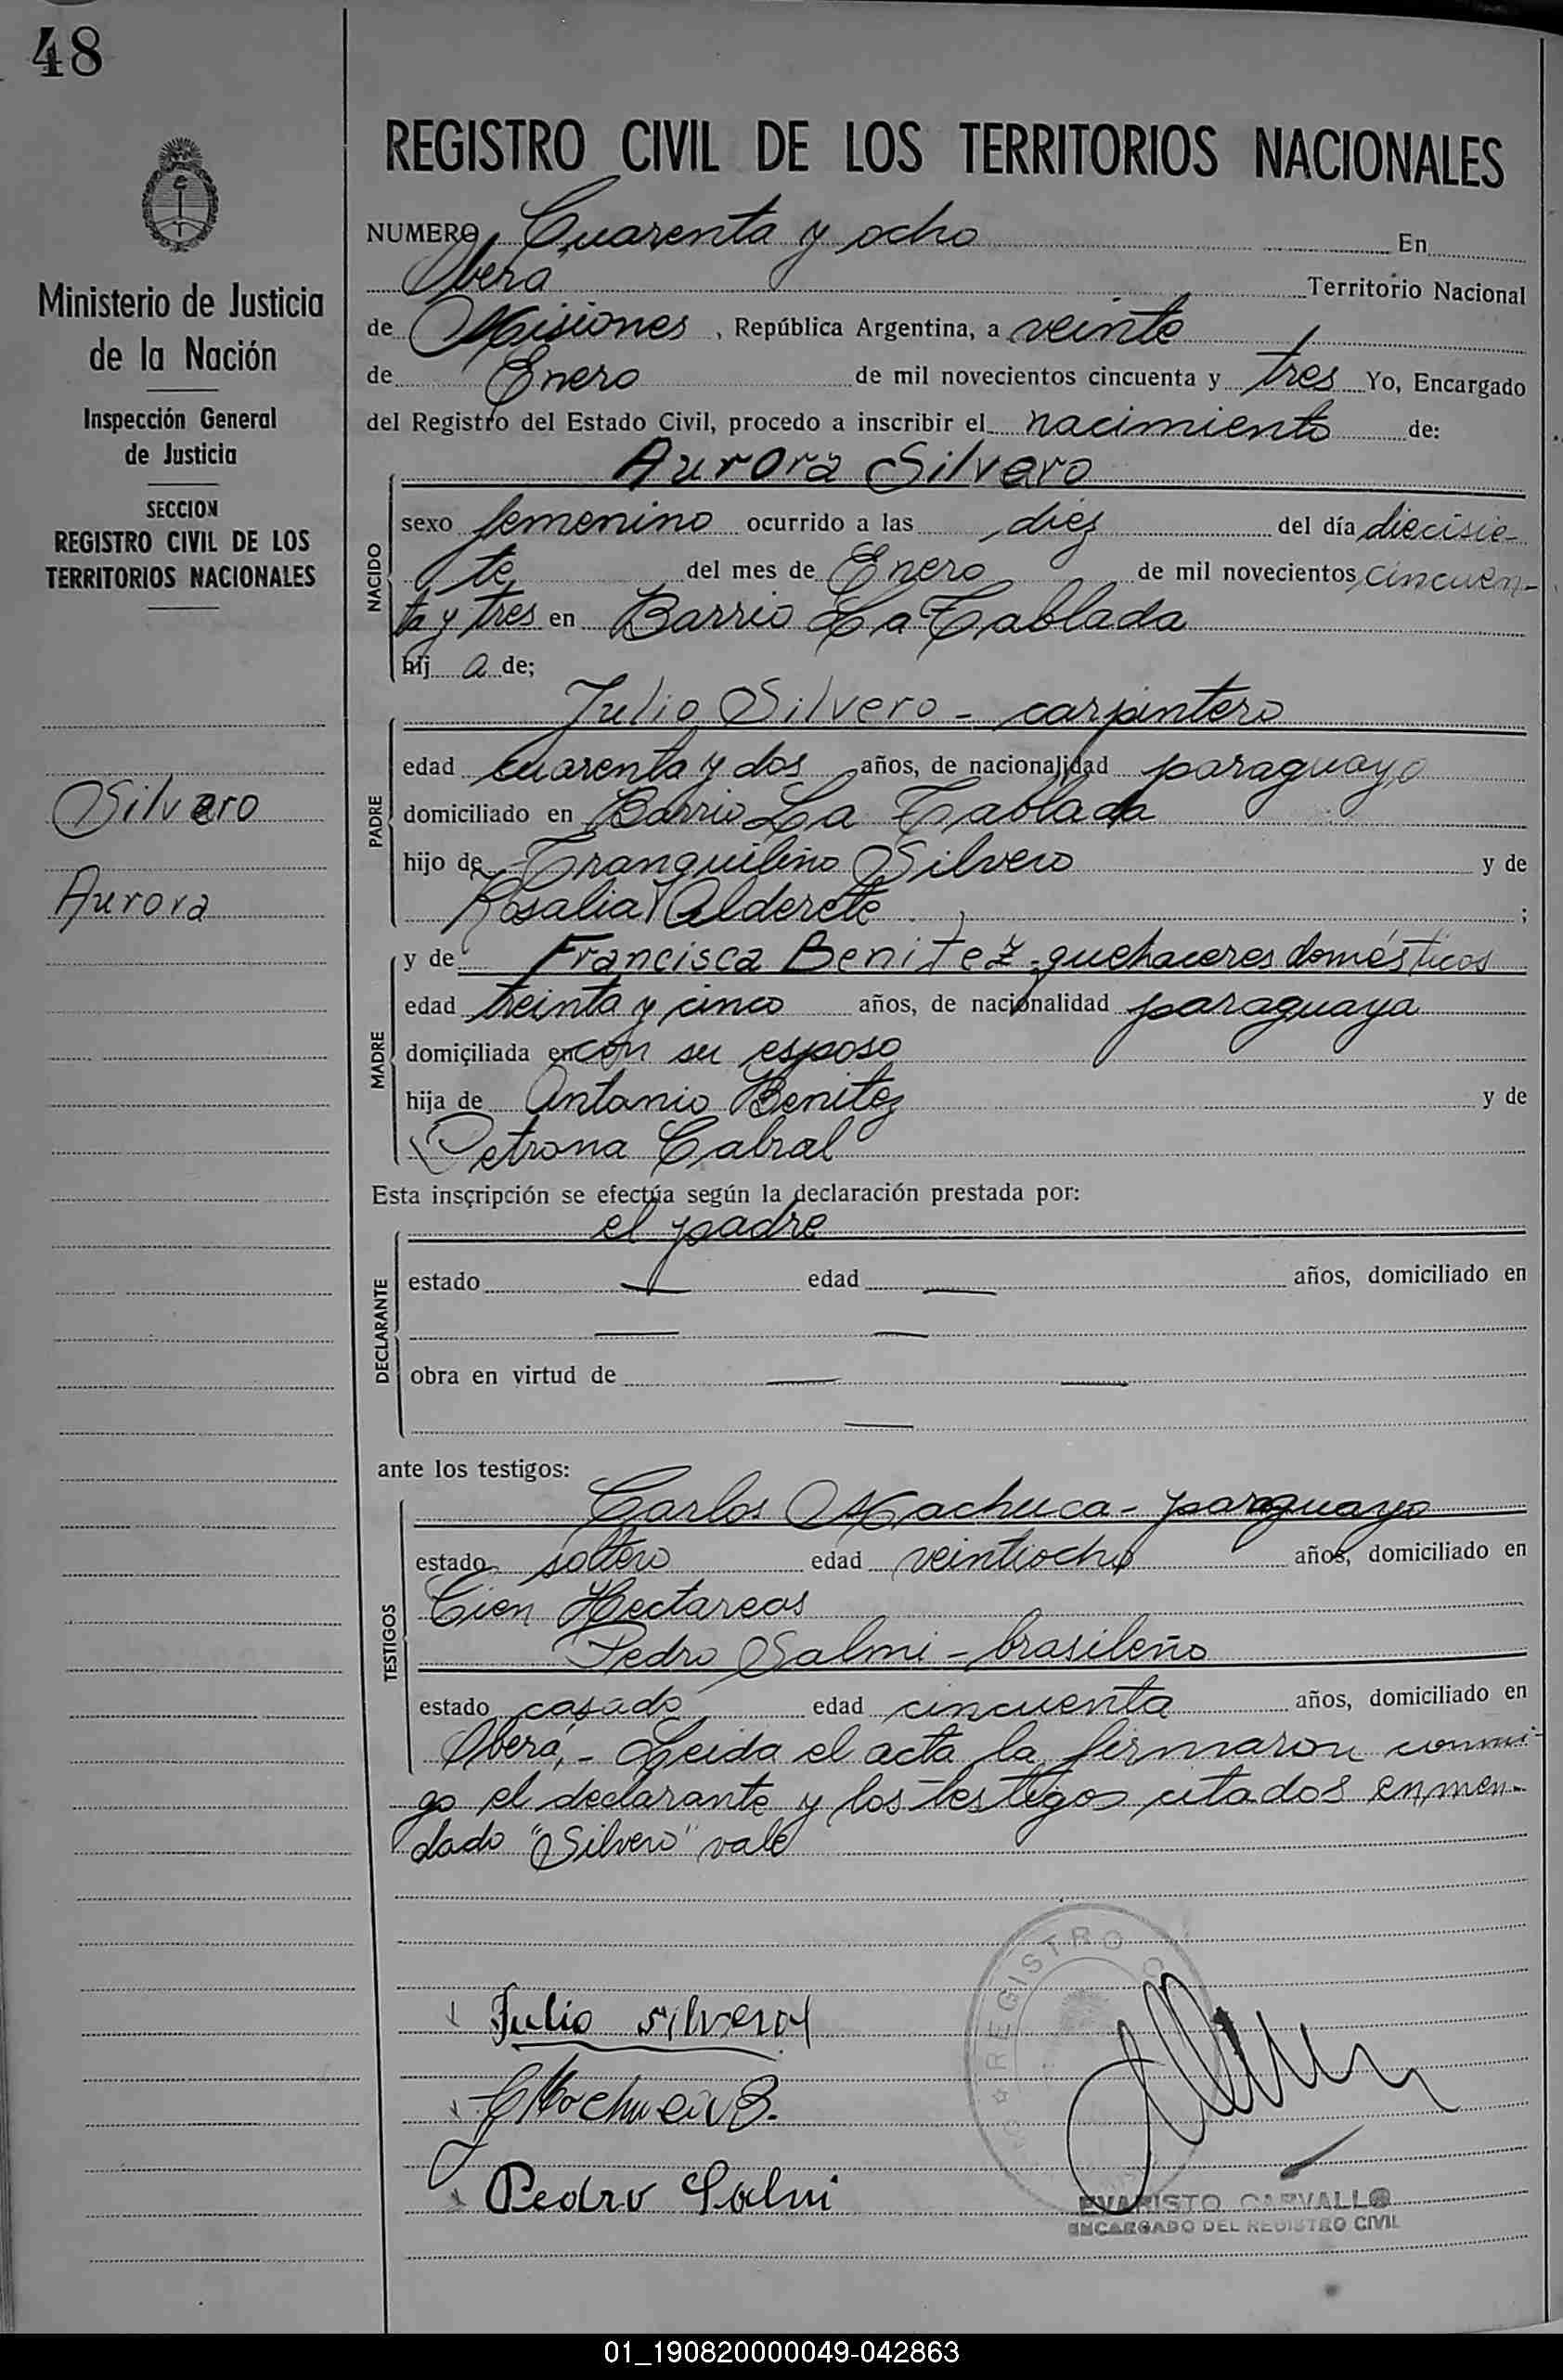 48
Ministerio de Justicia
de la Nación
Inspección General
de Justicia
SECCION
REGISTRO CIVIL DE LOS
TERRITORIOS NACIONALES
Silvero
Aurora
REGISTRO CIVIL DE LOS TERRITORIOS NACIONALES
NUMERO Cuarenta y ocho En
Oberá Territorio Nacional
de Misiones, República Argentina, a veinte
de Enero de mil novecientos cincuenta y tres Yo, Encargado
del Registro del Estado Civil, procedo a inscribir el nacimiento de:
Aurora Silvero
NACIDO
sexo femenino ocurrido a las diez del día diecisie-
te del mes de Enero de mil novecientos cincuen-
ta y tres en Barrio La Tablada
hij a de;
PADRE
Julio Silvero - carpintero
edad cuarenta y dos años, de nacionalidad paraguayo
domiciliado en Barrio La Tablada
hijo de Tranquilino Silvero y de
Rosalia Alderete ;
MADRE
y de Francisca Benitez - quehaceres domésticos
edad treinta y cinco años, de nacionalidad paraguaya
domiciliada en con su esposo
hija de Antonio Benitez y de
Petrona Cabral
Esta inscripción se efectúa según la declaración prestada por:
DECLARANTE
el padre
estado — edad — años, domiciliado en
— —
obra en virtud de — —
—
ante los testigos:
TESTIGOS
Carlos Machuca - paraguayo
estado soltero edad veintiocho años, domiciliado en
Cien Hectareas
Pedro Salmi - brasileño
estado casado edad cincuenta años, domiciliado en
Oberá, - Leida el acta la firmaron conmi-
go el declarante y los testigos citados enmen-
dado "Silvero" vale
REGISTRO
Julio silvero
Pedro Salmi
EVARISTO CARVALLO
ENCARGADO DEL REGISTRO CIVIL
01_190820000049-042863